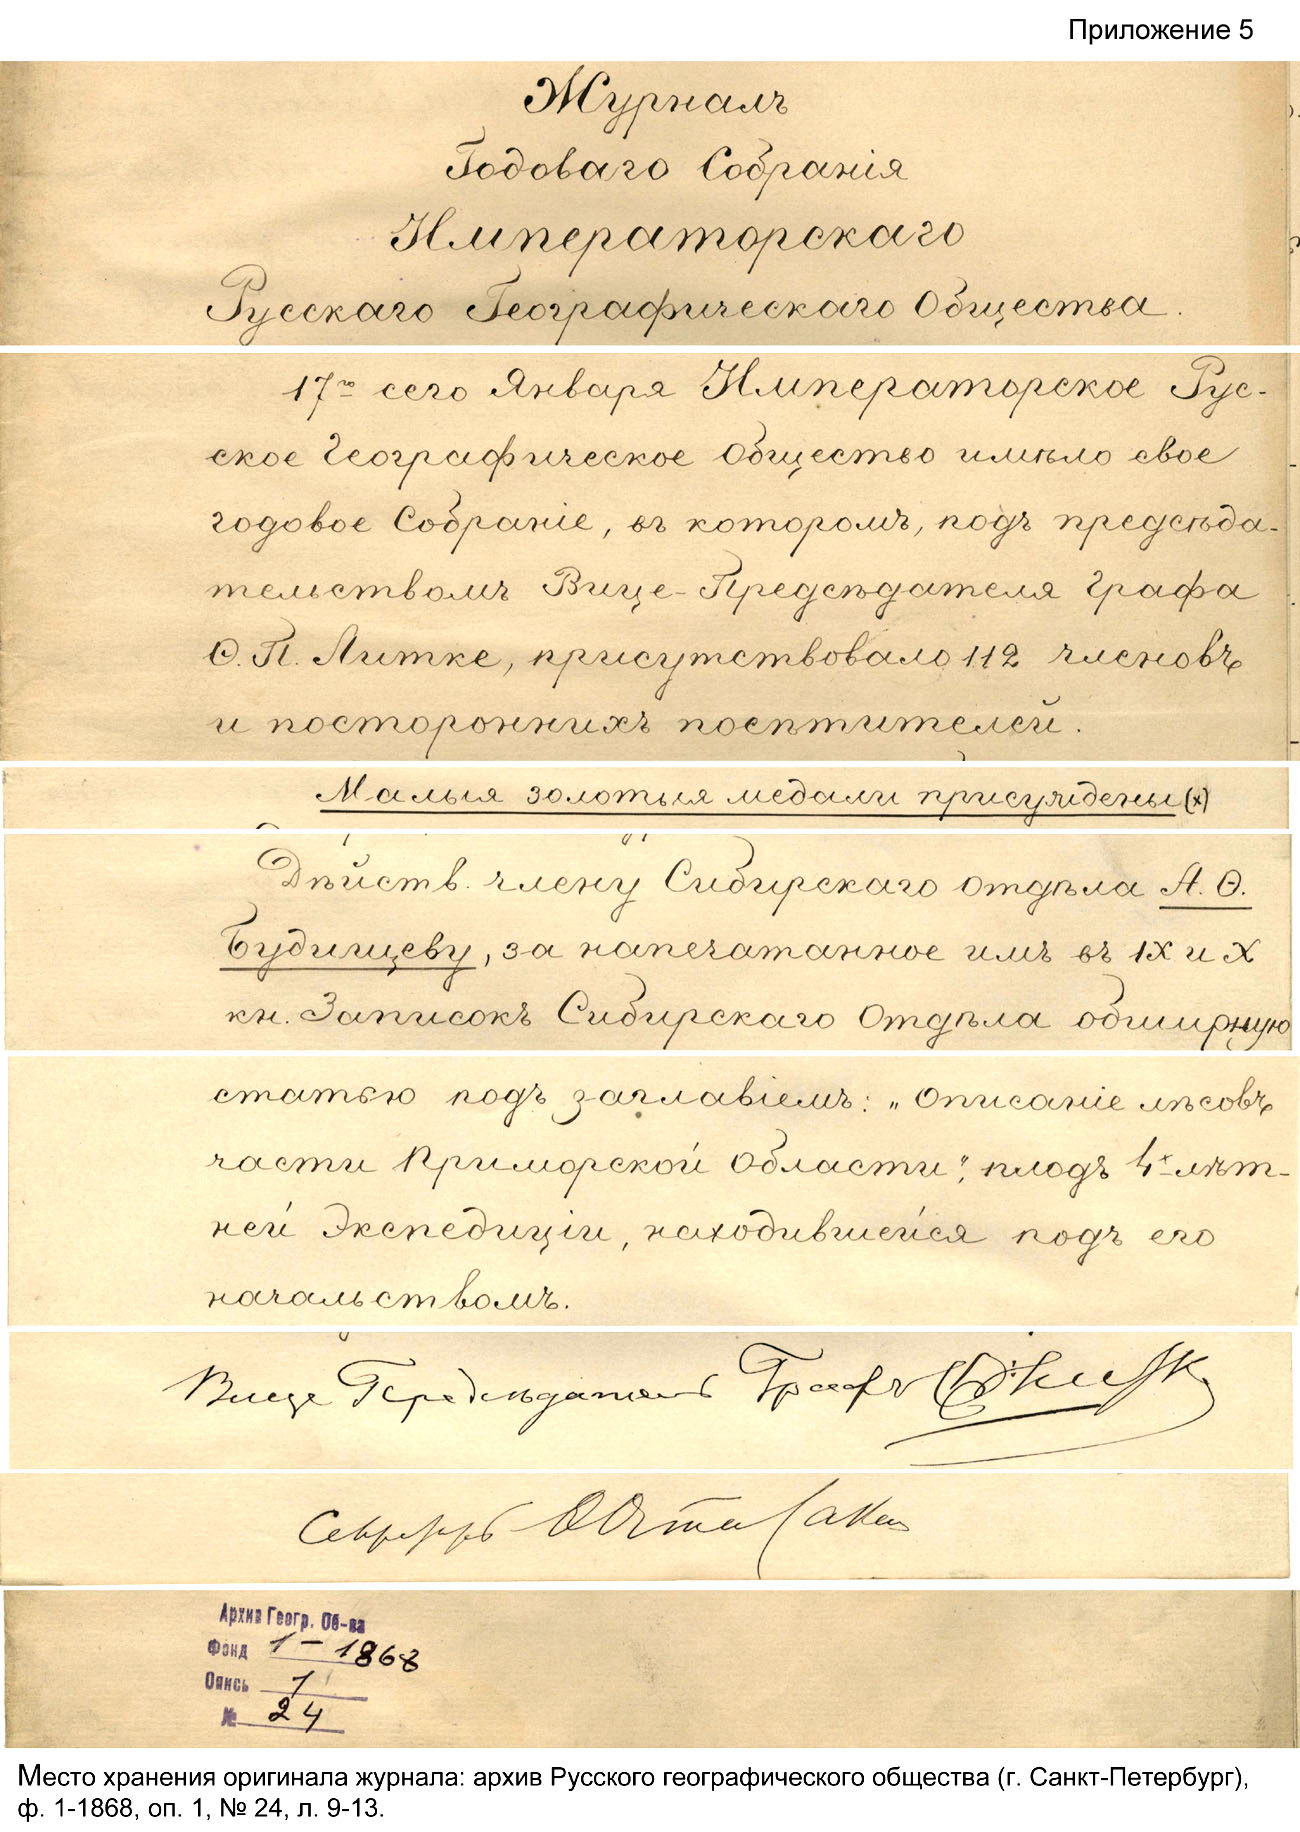 Приложение 5
Журналъ
Годоваго Собранія
Императорскаго
Русскаго Географическаго Общества.
17го сего Января Императорское Рус-
ское Географическое Общество имѣло свое
годовое Собраніе, въ которомъ, подъ предсѣда-
тельствомъ Вице-Предсѣдателя Графа
Ѳ. П. Литке, присутствовало 112 членовъ
и постороннихъ посѣтителей.
Малыя золотыя медали присуждены (х)
Дѣйств. члену Сибирскаго отдѣла А. Ѳ.
Будищеву, за напечатанное имъ въ IX и X
кн. Записокъ Сибирскаго Отдѣла обширную
статью подъ заглавіемъ: „Описаніе лѣсовъ
части Приморской Области", плодъ 4х лѣт-
ней Экспедиціи, находившейся подъ его
начальствомъ.
Вице Предсѣдатель Графъ Ѳ Литке
Секретарь Ѳ Остен Сакен
Архив Геогр. Об-ва
Фонд 1-1868
Опись 1
№ 24
Место хранения оригинала журнала: архив Русского географического общества (г. Санкт-Петербург),
ф. 1-1868, оп. 1, № 24, л. 9-13.